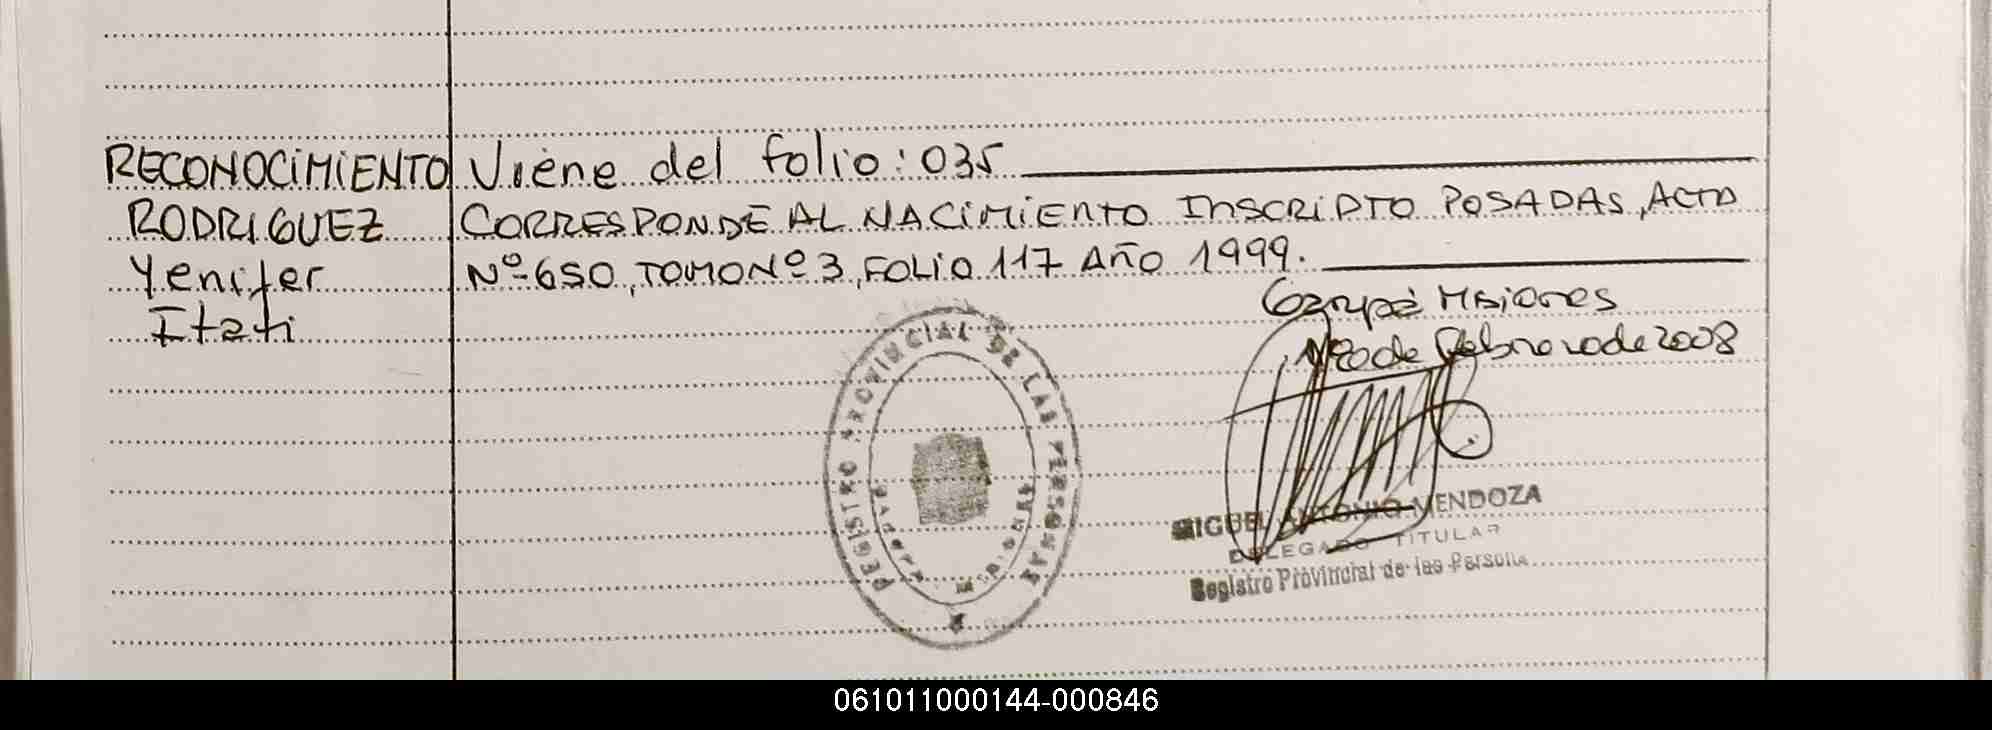 RECONOCIMIENTO Viene del folio: 035
RODRIGUEZ CORRESPONDE AL NACIMIENTO INSCRIPTO POSADAS, ACTA
Yenifer Nº 650, TOMO Nº 3, FOLIO 117 AÑO 1999.
Itati
Garupá Misiones
de Febrero de 2008
REGISTRO PROVINCIAL DE LAS PERSONAS
GARUPA
MISIONES
MIGUEL ANTONIO MENDOZA
DELEGADO TITULAR
Registro Provincial de las Persona
061011000144-000846